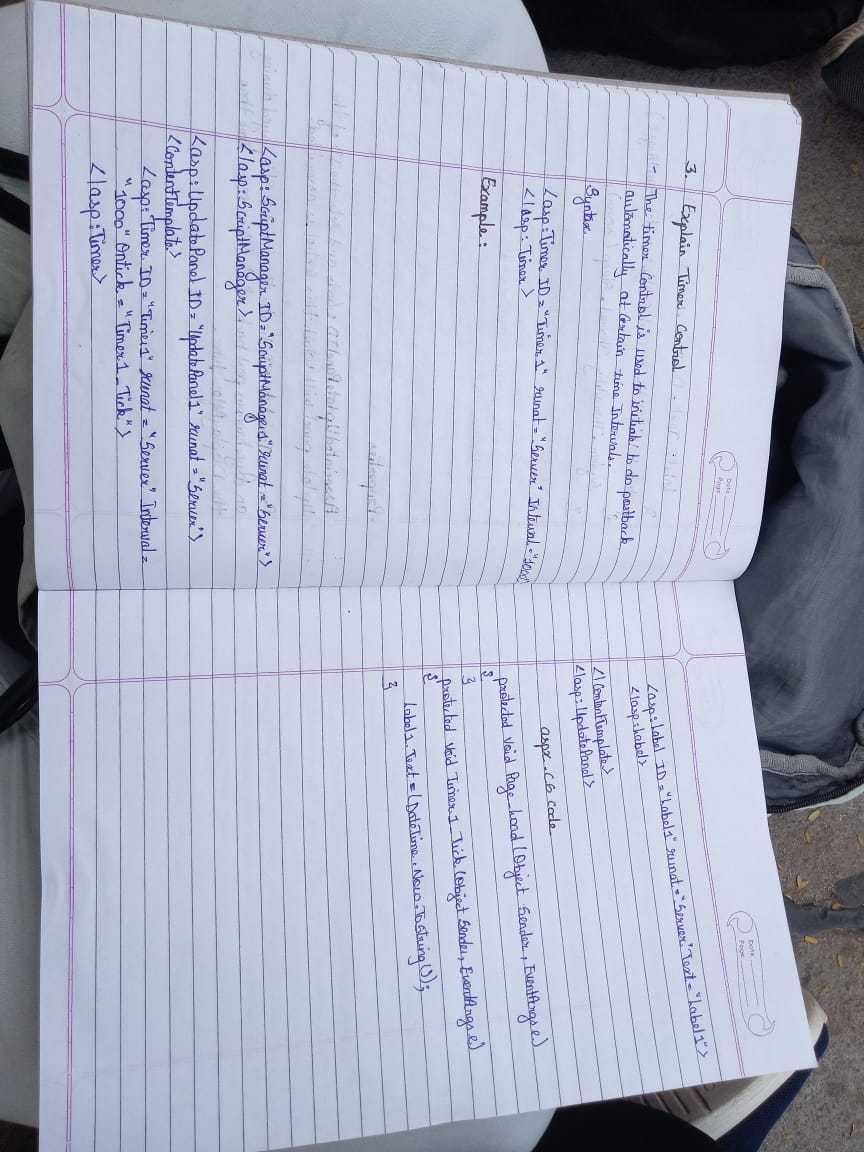 Date
Page
3. Explain Timer Control.
- The timer Control is used to initiab/ to do postback
automatically at Certain time Intervals.
Syntax
<asp:Timer ID="Timer1" runat="Server" Interval="1000"
</asp:Timer>
Example:
<asp:ScriptManager ID="ScriptManager1" runat="Server">
</asp:ScriptManager>
<asp:UpdatePanel ID="UpdatePanel1" runat="Server">
<ContentTemplate>
<asp:Timer ID="Timer1" runat="Server" Interval=
"1000" Ontick="Timer1_Tick">
</asp:Timer>
Date
Page
<asp:Label ID="Label1" runat="Server" Text="Label1">
</asp:Label>
</ContentTemplate>
</asp:UpdatePanel>
aspx.CS code
protected void Page_Load (Object Sender, EventArgs e)
{
}
protected void Timer1_Tick (Object Sender, EventArgs e)
{
Label1.Text=(DateTime.Now.ToString());
}